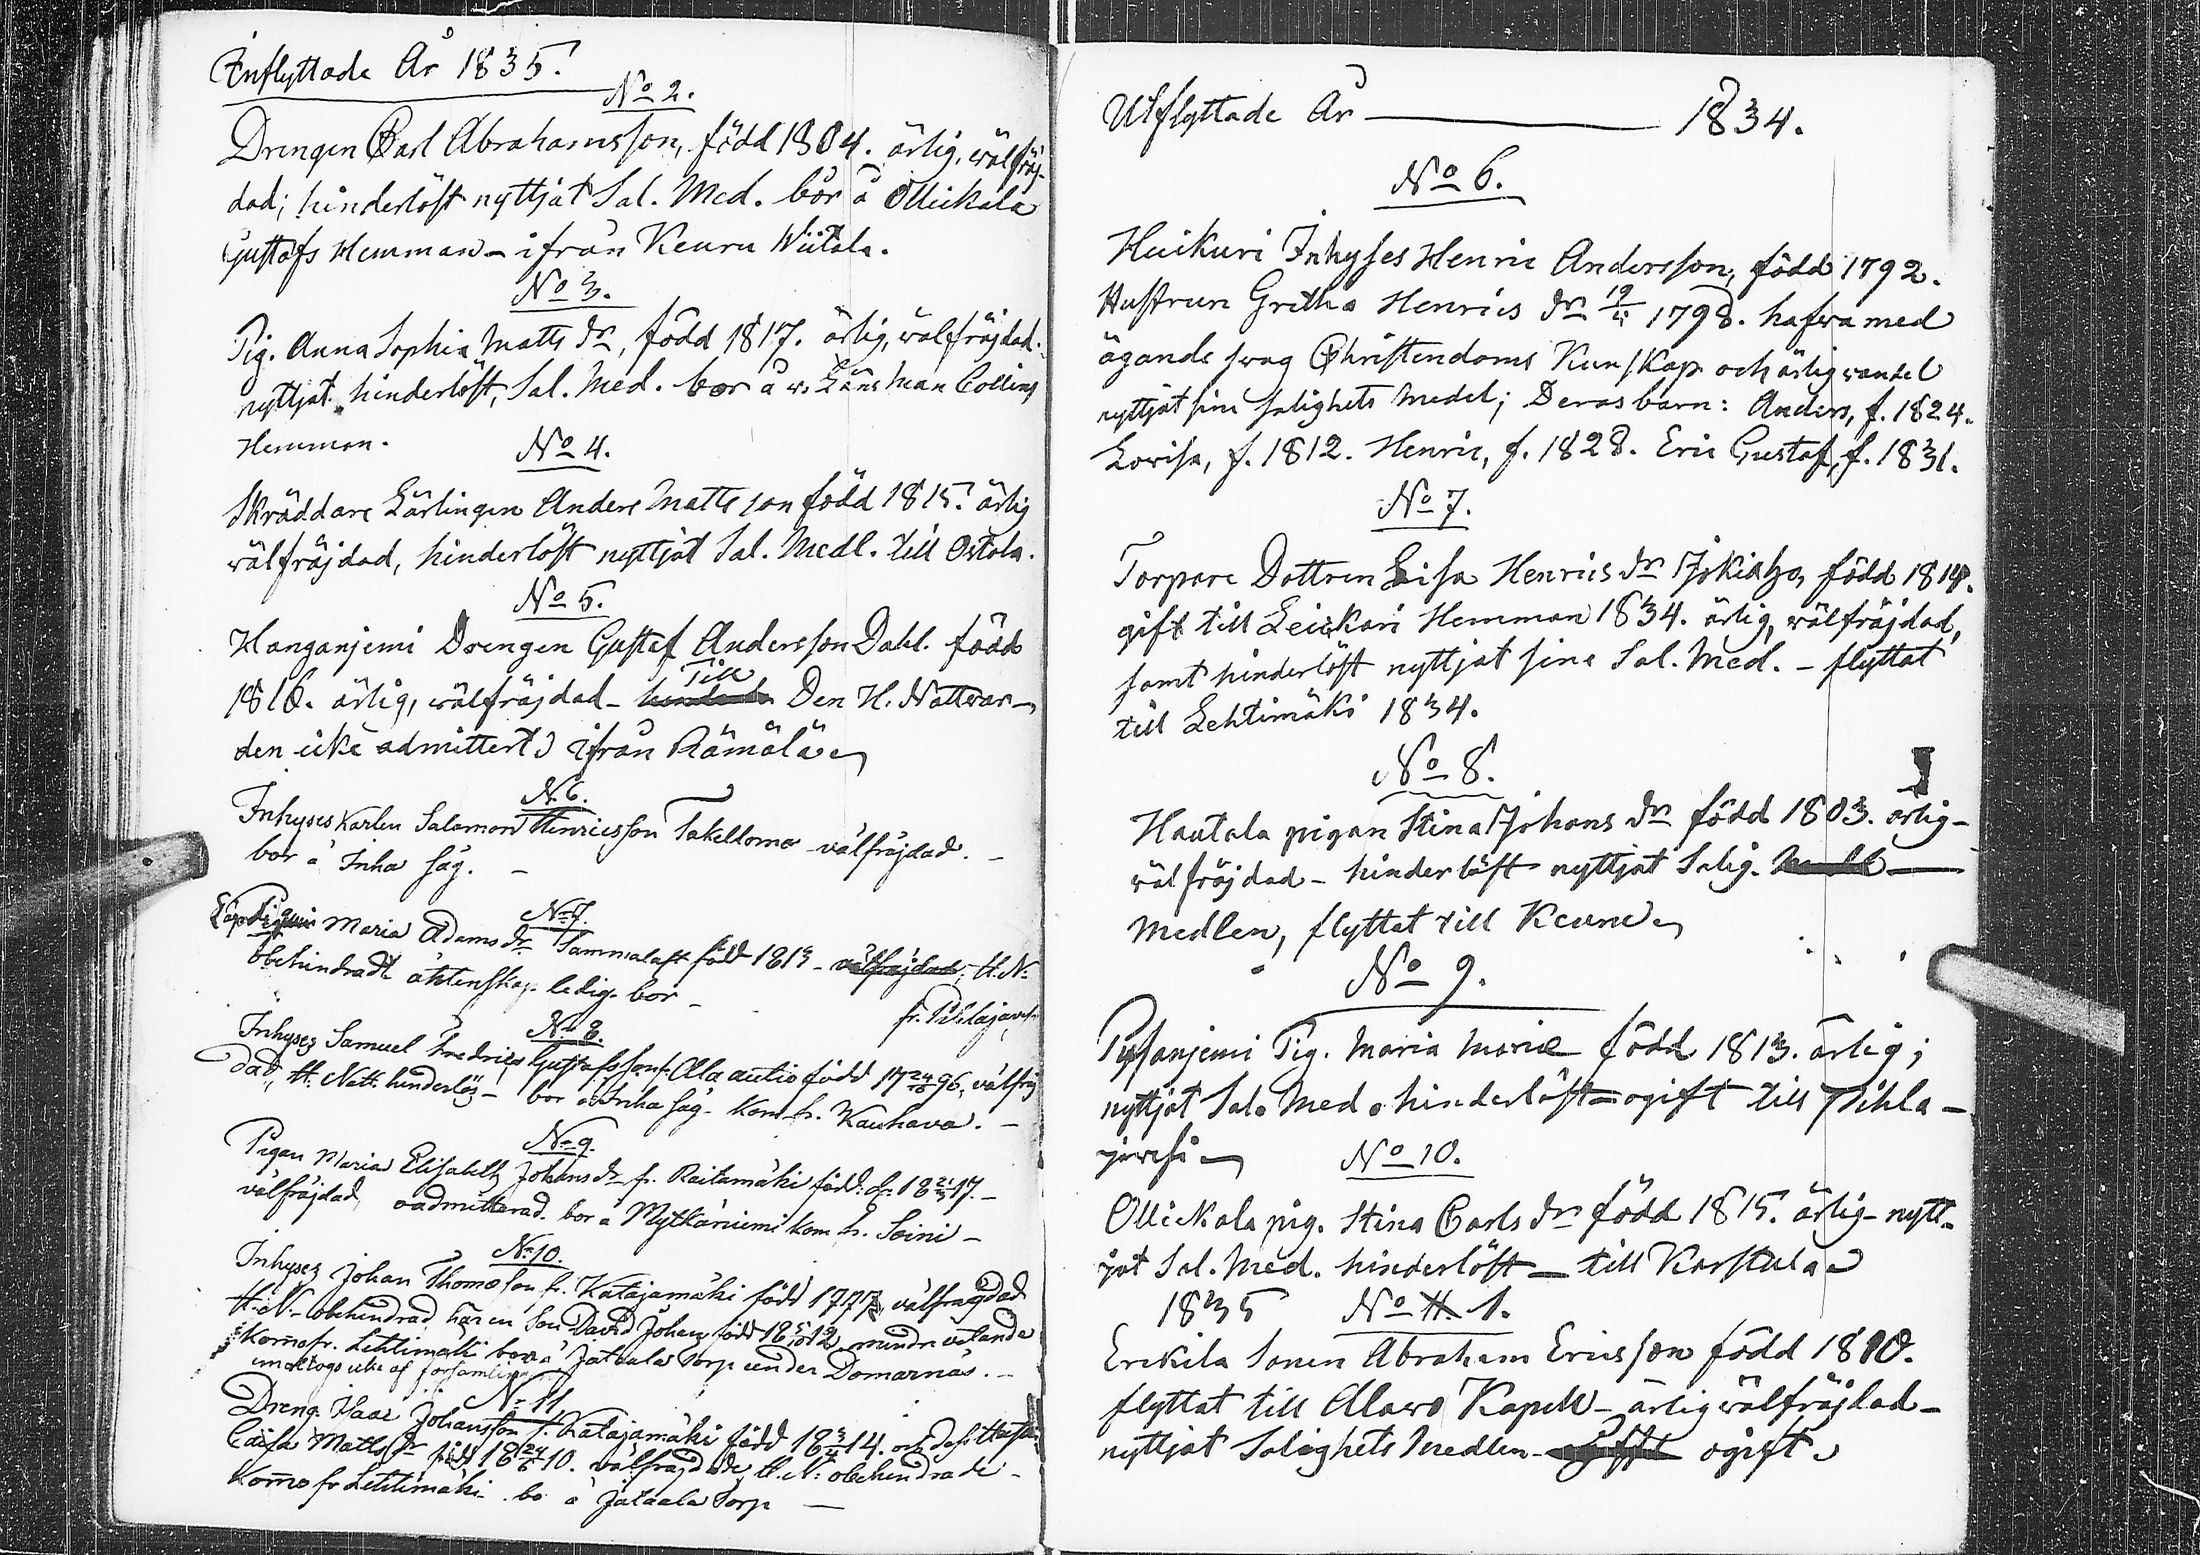 Inflyttade År 1835.
No 2.
Drengen Carl Abrahamsson, född 1804. ärlig, wälfräj-
dad; hinderlöst nyttjat Sal. Med. bor å Ollikala
Gustafs Hemman – ifrån Keuru Wiitala.
No 3.
Pig. Anna Sophia Matts dr, född 1817. ärlig, wälfräjdad.
nyttjat hinderlöst, Sal. Med. bor å v. Länsman Collins
Hemman.
No 4.
Skräddare Lärlingen Anders Matts son född 1815. ärlig
wälfräjdad, hinderlöst nyttjat Sal. Medl. till Ostola.
No 5.
Hanganjemi Drengen Gustaf Andersson Dahl. född
1816. ärlig, wälfräjdad – Till Den H. Nattvar–
den icke admittert) ifrån Rämälä
N. 6.
Inhyses Karlen Salomon Henricsson wälfräjdad. –
bor å Inha såg. –
No 7.
Maria Adams dr född 1813 – wälfräjdad, H. N.
obehindradt äktenskap. ledig. bor –
fr. Pihlajavesi
No 8.
Inhyses Samuel Fredric Gustafsson Ala autio född 17 24/10 96, välfräj
dad, H. Natt. hinderlös – bor å Inha såg. Kom fr. Kauhava. –
No 9.
Pigan Maria Elisabeth Johans dr fr. Raitamäki född 18 21/3 17. –
välfräjdad, oadmitterad. bor å Mytkäniemi kom fr. Soini –
No 10.
Inhyses Johan Thomasson fr. Katajamäki född 1777, välfrägdad
H. N. – obehindrad har en Son David Johan född 18 5/10 12, mindre vetande
Komo fr. Lehtimäki bor å Jataala Torp under Domarnäs. –
emottogs icke af församlingen
No 11.
Dreng Isaac Johansson f. Katajamäki född 18 3/4 14. och dess Hustru
Caisa Matts dr född 18 24/6 10. välfrajdade, H. N. obehindrade –
Komo fr Lehtimäki. bo å Jataala Torp –
Utflyttade År 1834.
No 6.
Huikuri Inhyses Henric Andersson, född 1792.
Hustrun Gretha Henrics dr 1798. hafva med
ägande swag Christendoms Kunskap och ärlig vandel
nyttjat sine salighets medel; Deras barn: Anders, f. 1824.
Lovisa, f. 1812. Henric, f. 1828. Eric Gustaf, f. 1831.
No 7.
Torpare Dottren Lisa Henrics dr Jokiaho, född 1814.
gift till Leickari Hemman 1834. ärlig, wälfräjdad,
samt hinderlöst nyttjat sine Sal. Med. – flyttat
till Lehtimäki 1834.
No 8.
Hautala pigan Stina Johans dr född 1803. ärlig –
wälfräjdad – hinderlöst nyttjat Salig. Medl
Medlen, flyttat till Keuru
No 9.
Pyssanjemi Pig. Maria född 1813. ärlig;
nyttjat Sal. Med. hinderlöst = ogift till Pihla –
jawesi
No 10.
Ollikala pig. Stina Carls dr född 1815. ärlig – nytt–
jat Sal. Med. hinderlöst – till Karstula
1835 No 11. 1.
Erikila Sonen Abraham Ericsson född 1810.
flyttat till Alavo Kapell – ärlig wälfräjdad –
nyttjat Salighets Medlen – ogift